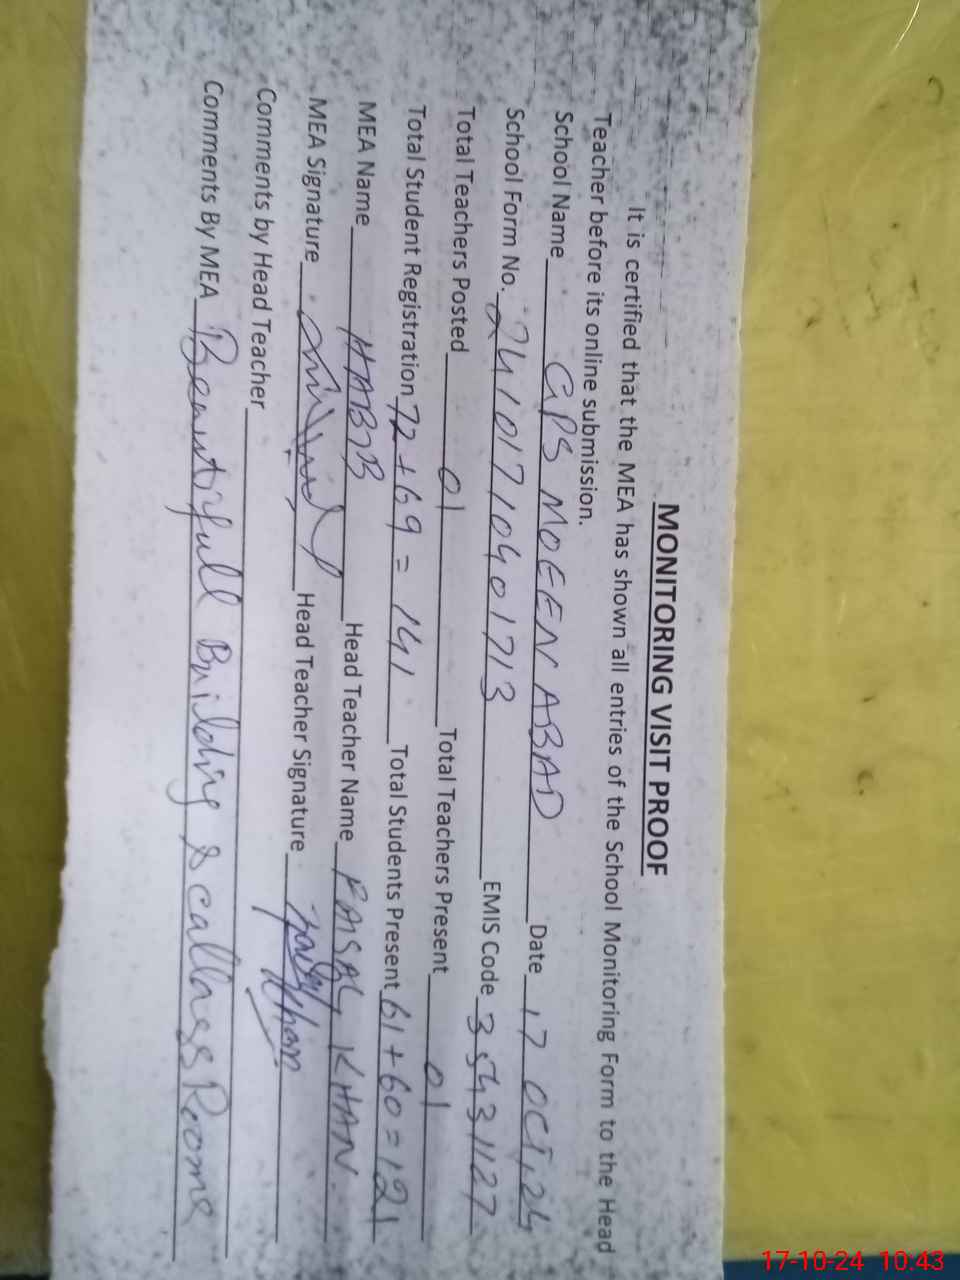 MONITORING VISIT PROOF
It is certified that the MEA has shown all entries of the School Monitoring Form to the Head
Teacher before its online submission.
School Name GPS MOEEN ABAD Date 17 OCT, 24
School Form No. 24101710401713 EMIS Code 35431127
Total Teachers Posted 01 Total Teachers Present 01
Total Student Registration 72+69=141 Total Students Present 61+60=121
MEA Name HABIB Head Teacher Name FAISAL KHAN.
MEA Signature Head Teacher Signature
Comments by Head Teacher
Comments By MEA Beautifull Building & callass Rooms
17-10-24 10:43